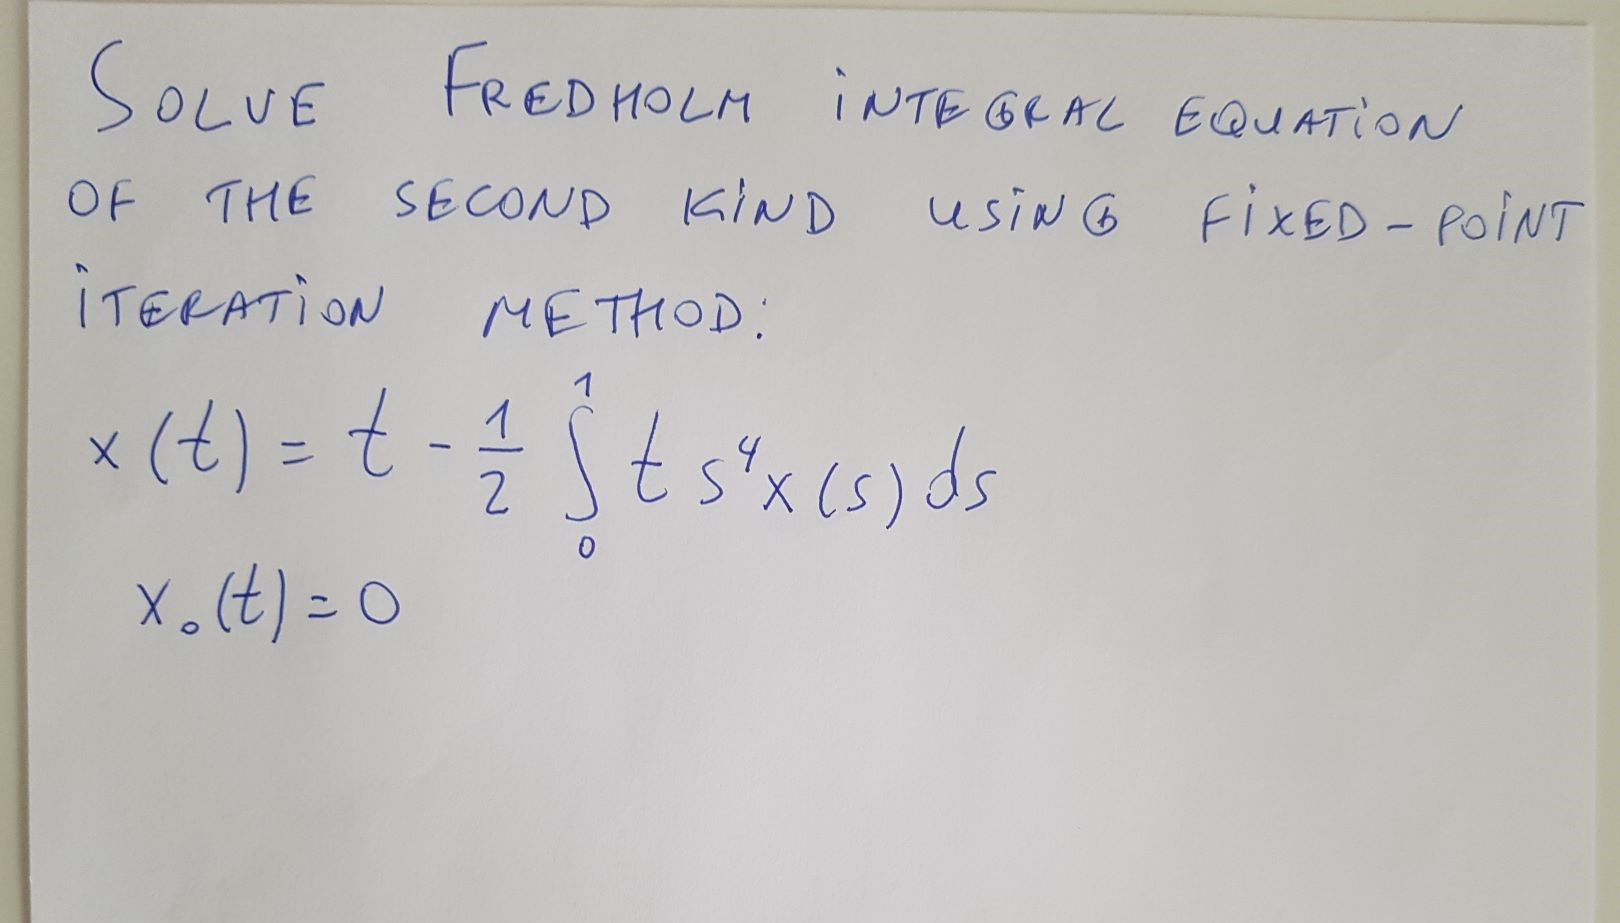 SOLVE FREDHOLM INTEGRAL EQUATION
OF THE SECOND KIND USING FIXED-POINT
ITERATION METHOD:
x(t) = t - 1/2 ∫₀¹ t s⁴x(s) ds
x₀(t) = 0